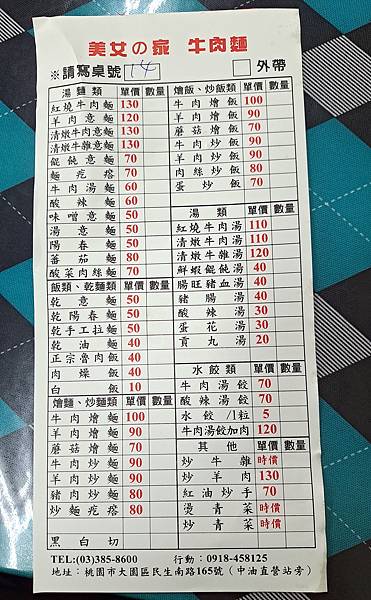 美女の家 牛肉麵
※請寫桌號 14 外帶
湯麵類 單價 數量
紅燒牛肉麵 130
羊肉意麵 120
清燉牛肉意麵 130
清燉牛雜意麵 130
餛飩意麵 70
麵疙瘩 70
牛肉湯麵 60
酸辣麵 60
味噌意麵 50
湯意麵 50
陽春麵 50
蕃茄麵 80
酸菜肉絲麵 70
飯類、乾麵類 單價 數量
乾意麵 50
乾陽春麵 50
乾手工拉麵 50
乾油麵 40
正宗魯肉飯 40
肉燥飯 40
白飯 10
燴麵、炒麵類 單價 數量
牛肉燴麵 100
羊肉燴麵 90
蘑菇燴麵 70
牛肉炒麵 90
羊肉炒麵 90
豬肉炒麵 80
炒麵疙瘩 80
黑白切
燴飯、炒飯類 單價 數量
牛肉燴飯 100
羊肉燴飯 90
蘑菇燴飯 70
牛肉炒飯 90
羊肉炒飯 90
肉絲炒飯 80
蛋炒飯 70
湯類 單價 數量
紅燒牛肉湯 110
清燉牛肉湯 110
清燉牛雜湯 120
鮮蝦餛飩湯 40
腸旺豬血湯 40
豬腸湯 40
酸辣湯 30
蛋花湯 30
貢丸湯 20
水餃類 單價 數量
牛肉湯餃 70
酸辣湯餃 70
水餃/1粒 5
牛肉湯餃加肉 120
其他 單價 數量
炒牛雜 時價
炒羊肉 130
紅油炒手 70
燙青菜 時價
炒青菜 時價
TEL:(03)385-8600 行動：0918-458125
地址：桃園市大園區民生南路165號（中油直營站旁）